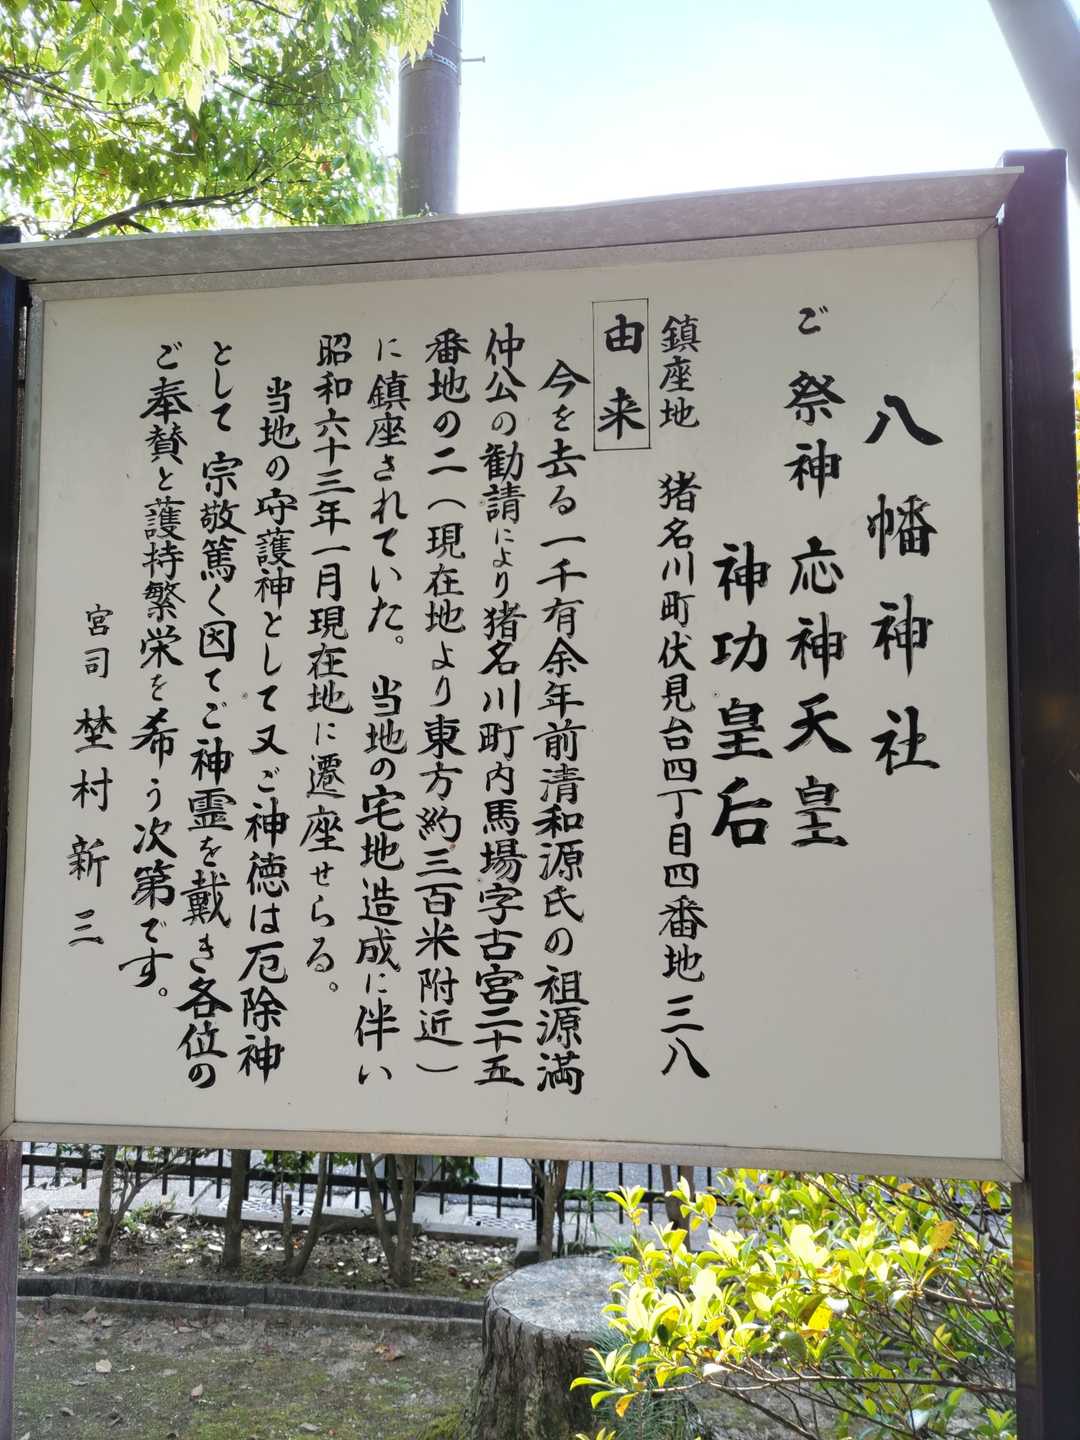 八幡神社
ご祭神 応神天皇
神功皇后
鎮座地 猪名川町伏見台四丁目四番地三八
由来
今を去る一千有余年前清和源氏の祖源満
仲公の勧請により猪名川町内馬場字古宮二十五
番地の二(現在地より東方約三百米附近)
に鎮座されていた。当地の宅地造成に伴い
昭和六十三年一月現在地に遷座せらる。
当地の守護神として又ご神徳は厄除神
として宗敬篤く因てご神霊を戴き各位の
ご奉賛と護持繁栄を希う次第です。
宮司 埜村新三